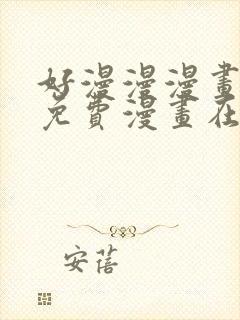 好漫漫漫畫
免費漫畫在
安蓓